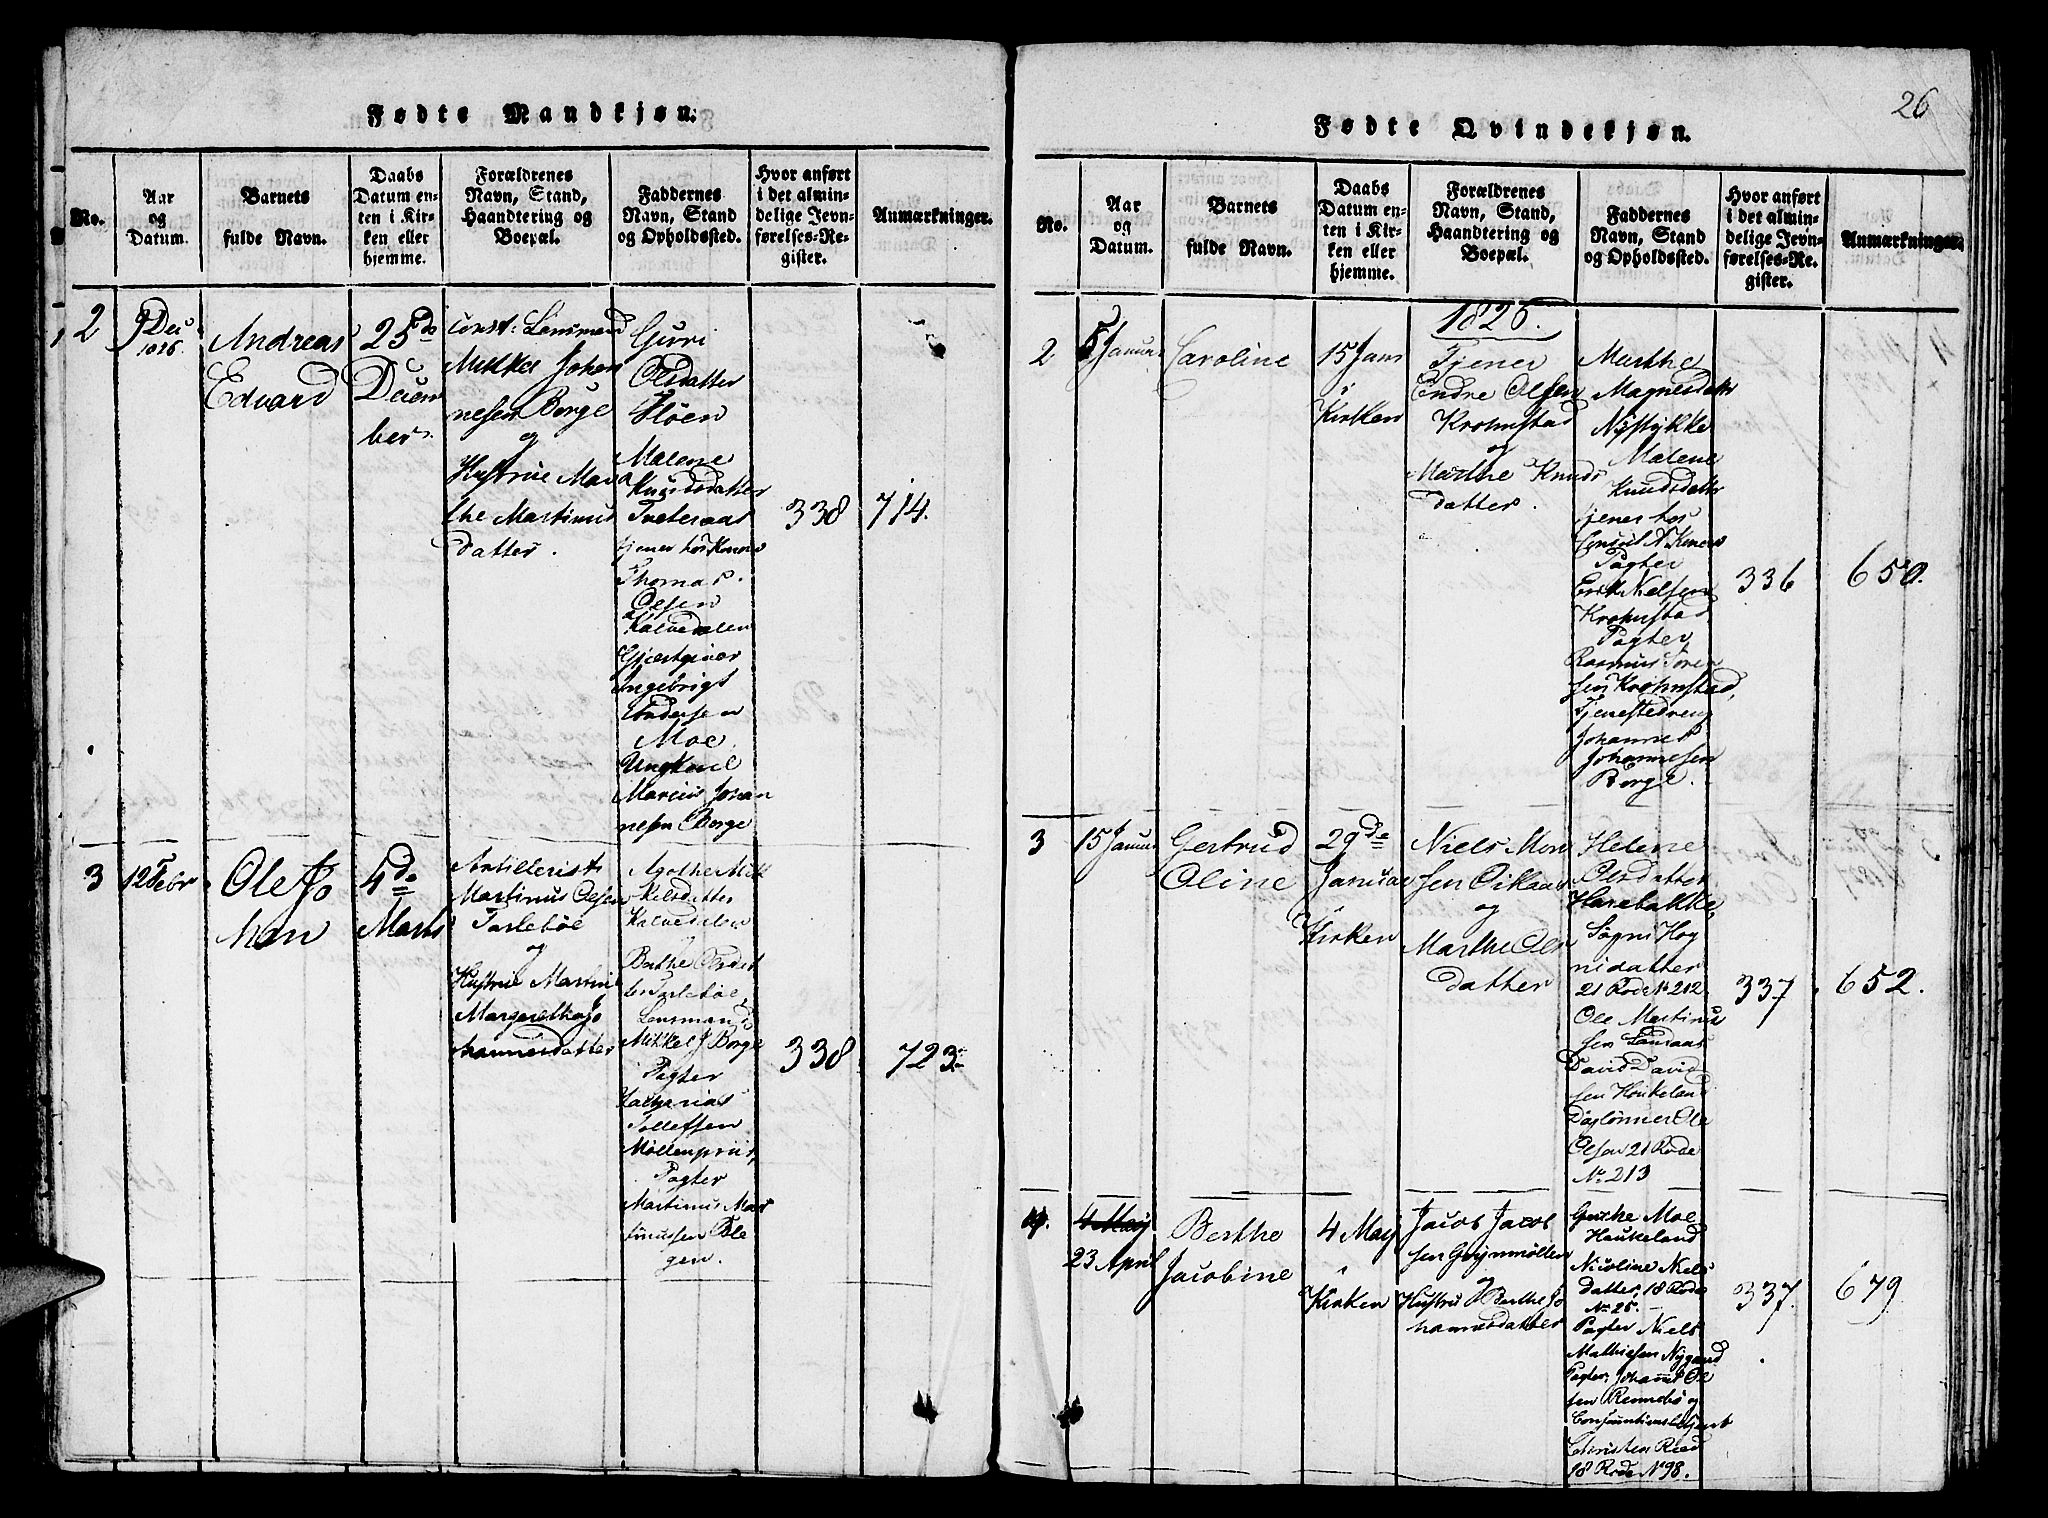 26
Fødte Mandkjøn.
No.
Aar
og
Datum.
Barnets
fulde Navn.
Daabs
Datum en-
ten i Kir-
ken eller
hjemme.
Forældrenes
Navn, Stand,
Haandtering og
Boepæl.
Faddernes
Navn, Stand
og Opholdssted.
Hvor anført
i det almin-
delige Jevn-
førelses-Re-
gister.
Anmærkninger.
2
9 Dec
Andreas
Edward
25de
Decem
ber
const: Lensmand
Mikkel Johan
nesen Borge
og
Hystrue Mar
the Martinus
datter.
Guri
Olsdatter
Malene
Knudsdatter
Tveteraas
tjener hos
Thomas
Olsen
Kalvedalen
Gjæstgiver
Ingebrigt
Andersen
Moe
Ungkarl
Marius Johan
nesen Borge
338
714.
3
12 Febr
Ole Jo
han
4de
Marts
Artillerist
Martinus Olsen
Tarlebøe
og
Hustrue Martine
Margrethe Jo
hannesdatter
Agothe Mik
kelsdatter
Kalvedalen
Berthe Olsdat
ter Tarlebøe
Lensmand
Mikkel J Borge
Pagter
Zacharias
Tollefsen
Møllenpriis,
Pagter
Martinus Mar
tinussen Ble
gen.
338
723
Fødte Qvindekjøn.
No.
Aar
og
Datum.
Barnets
fulde Navn.
Daabs
Datum en-
ten i Kir-
ken eller
hjemme.
Forældrenes
Navn, Stand,
Haandtering og
Boepæl.
Faddernes
Navn, Stand
og Opholdssted.
Hvor anført
i det almin-
delige Jevn-
førelses-Re-
gister.
Anmærkninger.
1826.
2
5 Januar
Caroline
15 Janu
i
Kirken
Tjener
Endre Olsen
Krohnstad
og
Marthe Knuds
datter.
Marthe
Magnesdatt
Nystykke
Malene
Knudsdatter
tjener hos
Consul A Konow
Pagter
Erik Nielsen
Krohnstad
Pagter
Rasmus Søren
sen Krohnstad,
Tjenestedreng
Johannes
Johannesen
Borge.
336
650.
3
15 Januar
Gertrud
Oline
29de
Januar
i
Kirken
Niels Mon
sen Eikaas
og
Marthe Ols
datter
Helene
Olsdatter
Harebakke,
Søgni Hog
nidatter
21 Rode No 212
Ole Martinus
sen
David David
sen Houkeland
Daglønner Ole
Olsen 21 Rode
No 213
337
652.
4.
4 May
23 April
Berthe
Jacobine
4 May
i
Kirken
Jacob Jacob
sen Grynmøllen
og
Hustru Berthe Jo
hannesdatter
Gurthe Moe
Haukeland
Nicoline Niels
datter, 18 Rode
No 25.
Pagter Niels
Mathiesen Nygaard
Pagter, Johannes Ol
sen Rennebø og
Consumtionsbetjent
Christen Ried
18 Rode No 98.
337.
679